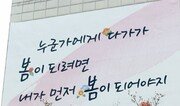 누군가에게 다가가
봄이 되려면
내가 먼저 봄이 되어야지